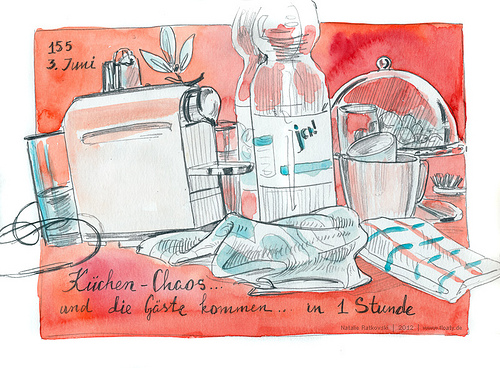 155
3. Juni
ja!
Küchen-Chaos...
und die Gäste kommen... in 1 Stunde
Natalia Ratkovski | 2012 | www.float.de